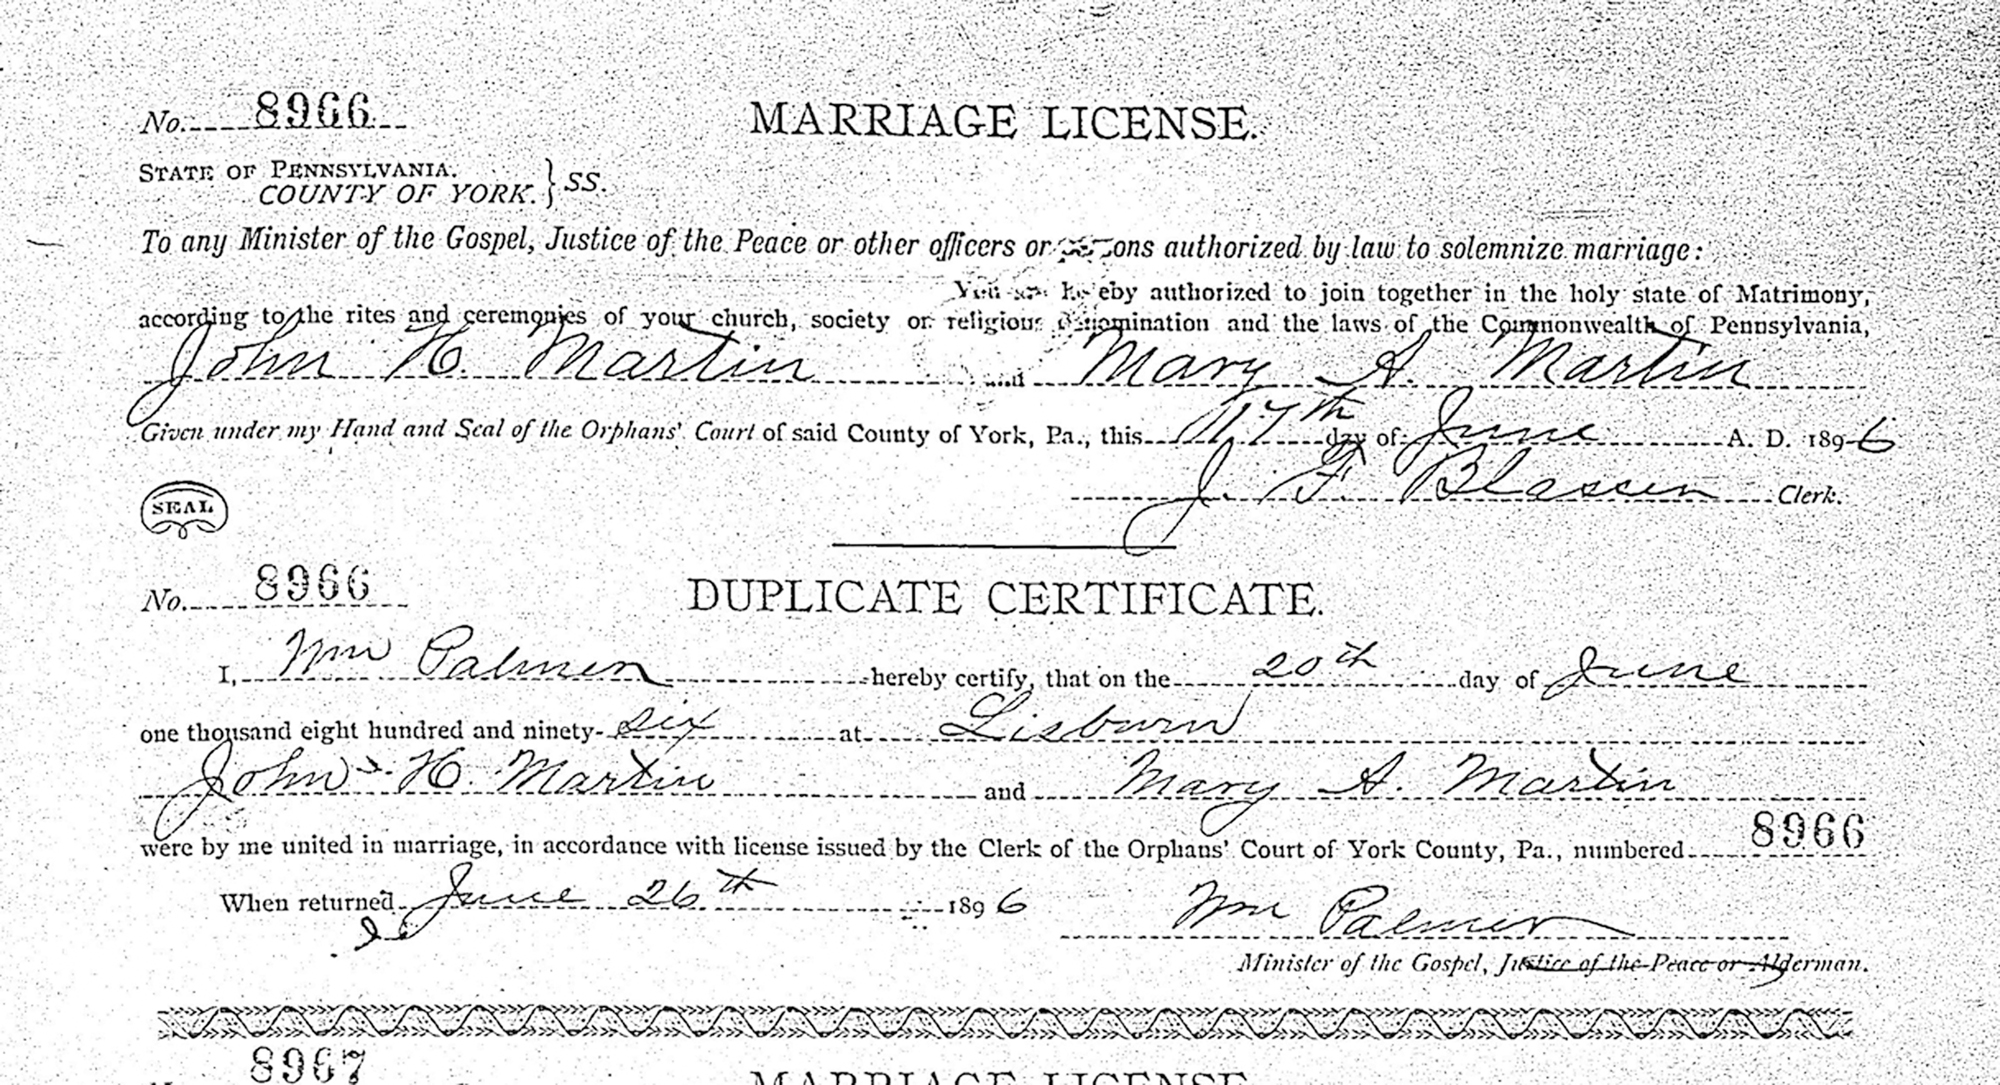 No. 8966
MARRIAGE LICENSE.
STATE OF PENNSYLVANIA.
COUNTY OF YORK. } SS.
To any Minister of the Gospel, Justice of the Peace or other officers or persons authorized by law to solemnize marriage:
You are hereby authorized to join together in the holy state of Matrimony,
according to the rites and ceremonies of your church, society or religious denomination and the laws of the Commonwealth of Pennsylvania,
John H. Martin and Mary A. Martin
Given under my Hand and Seal of the Orphans' Court of said County of York, Pa., this 17th day of June A. D. 1896
SEAL
J. F. Clerk.
No. 8966
DUPLICATE CERTIFICATE.
I, Wm Palmer hereby certify, that on the 20th day of June
one thousand eight hundred and ninety-six at Lisburn
John H. Martin and Mary A. Martin
were by me united in marriage, in accordance with license issued by the Clerk of the Orphans' Court of York County, Pa., numbered 8966
When returned June 26th 1896
Wm Palmer
Minister of the Gospel, Justice of the Peace or Alderman.
8967
MARRIAGE LICENSE